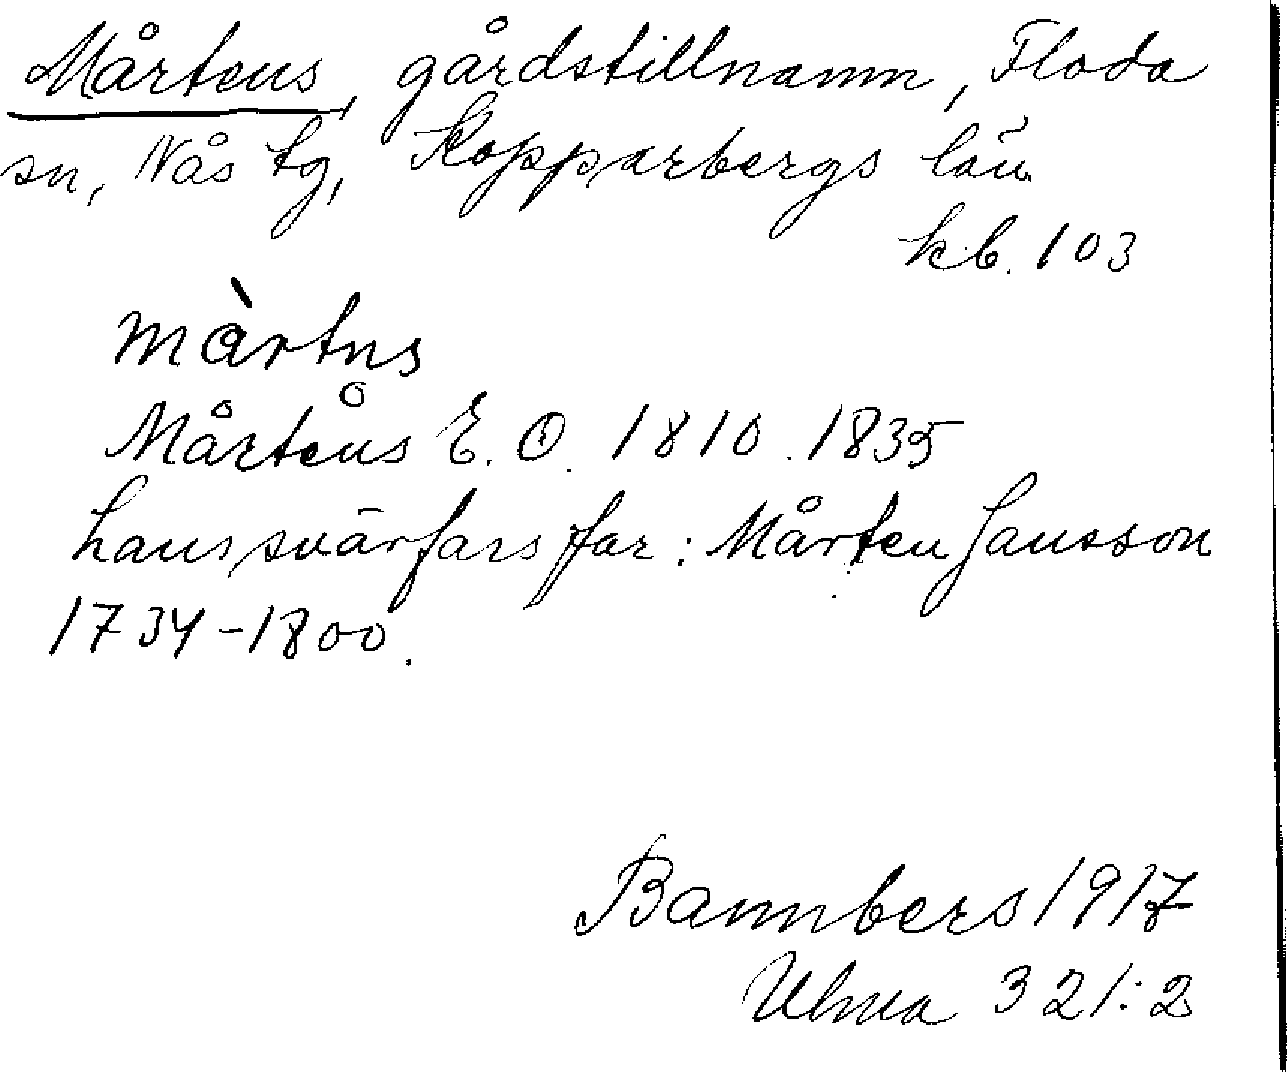 Mårtens, gårdstillnamn, Floda
sn, Nås tg, Kopparbergs län.
kb. 103
màrtns
Mårtens E. O. 1810. 1835
hans svärfars far: Mårten Jansson
1734-1800.
Bannbers 1917
Ulma 321:2